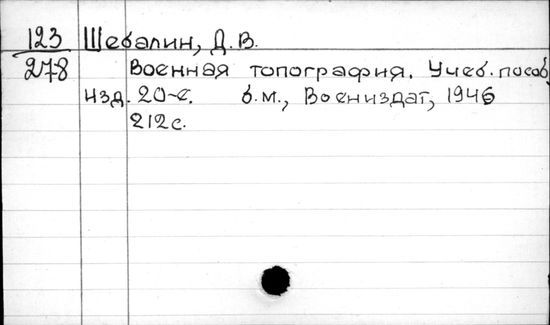 123 Шебалин, Д.В.
278 Военная топография. Учеб. пособ,
изд. 20-е. б.м., Воениздат, 1946
212с.